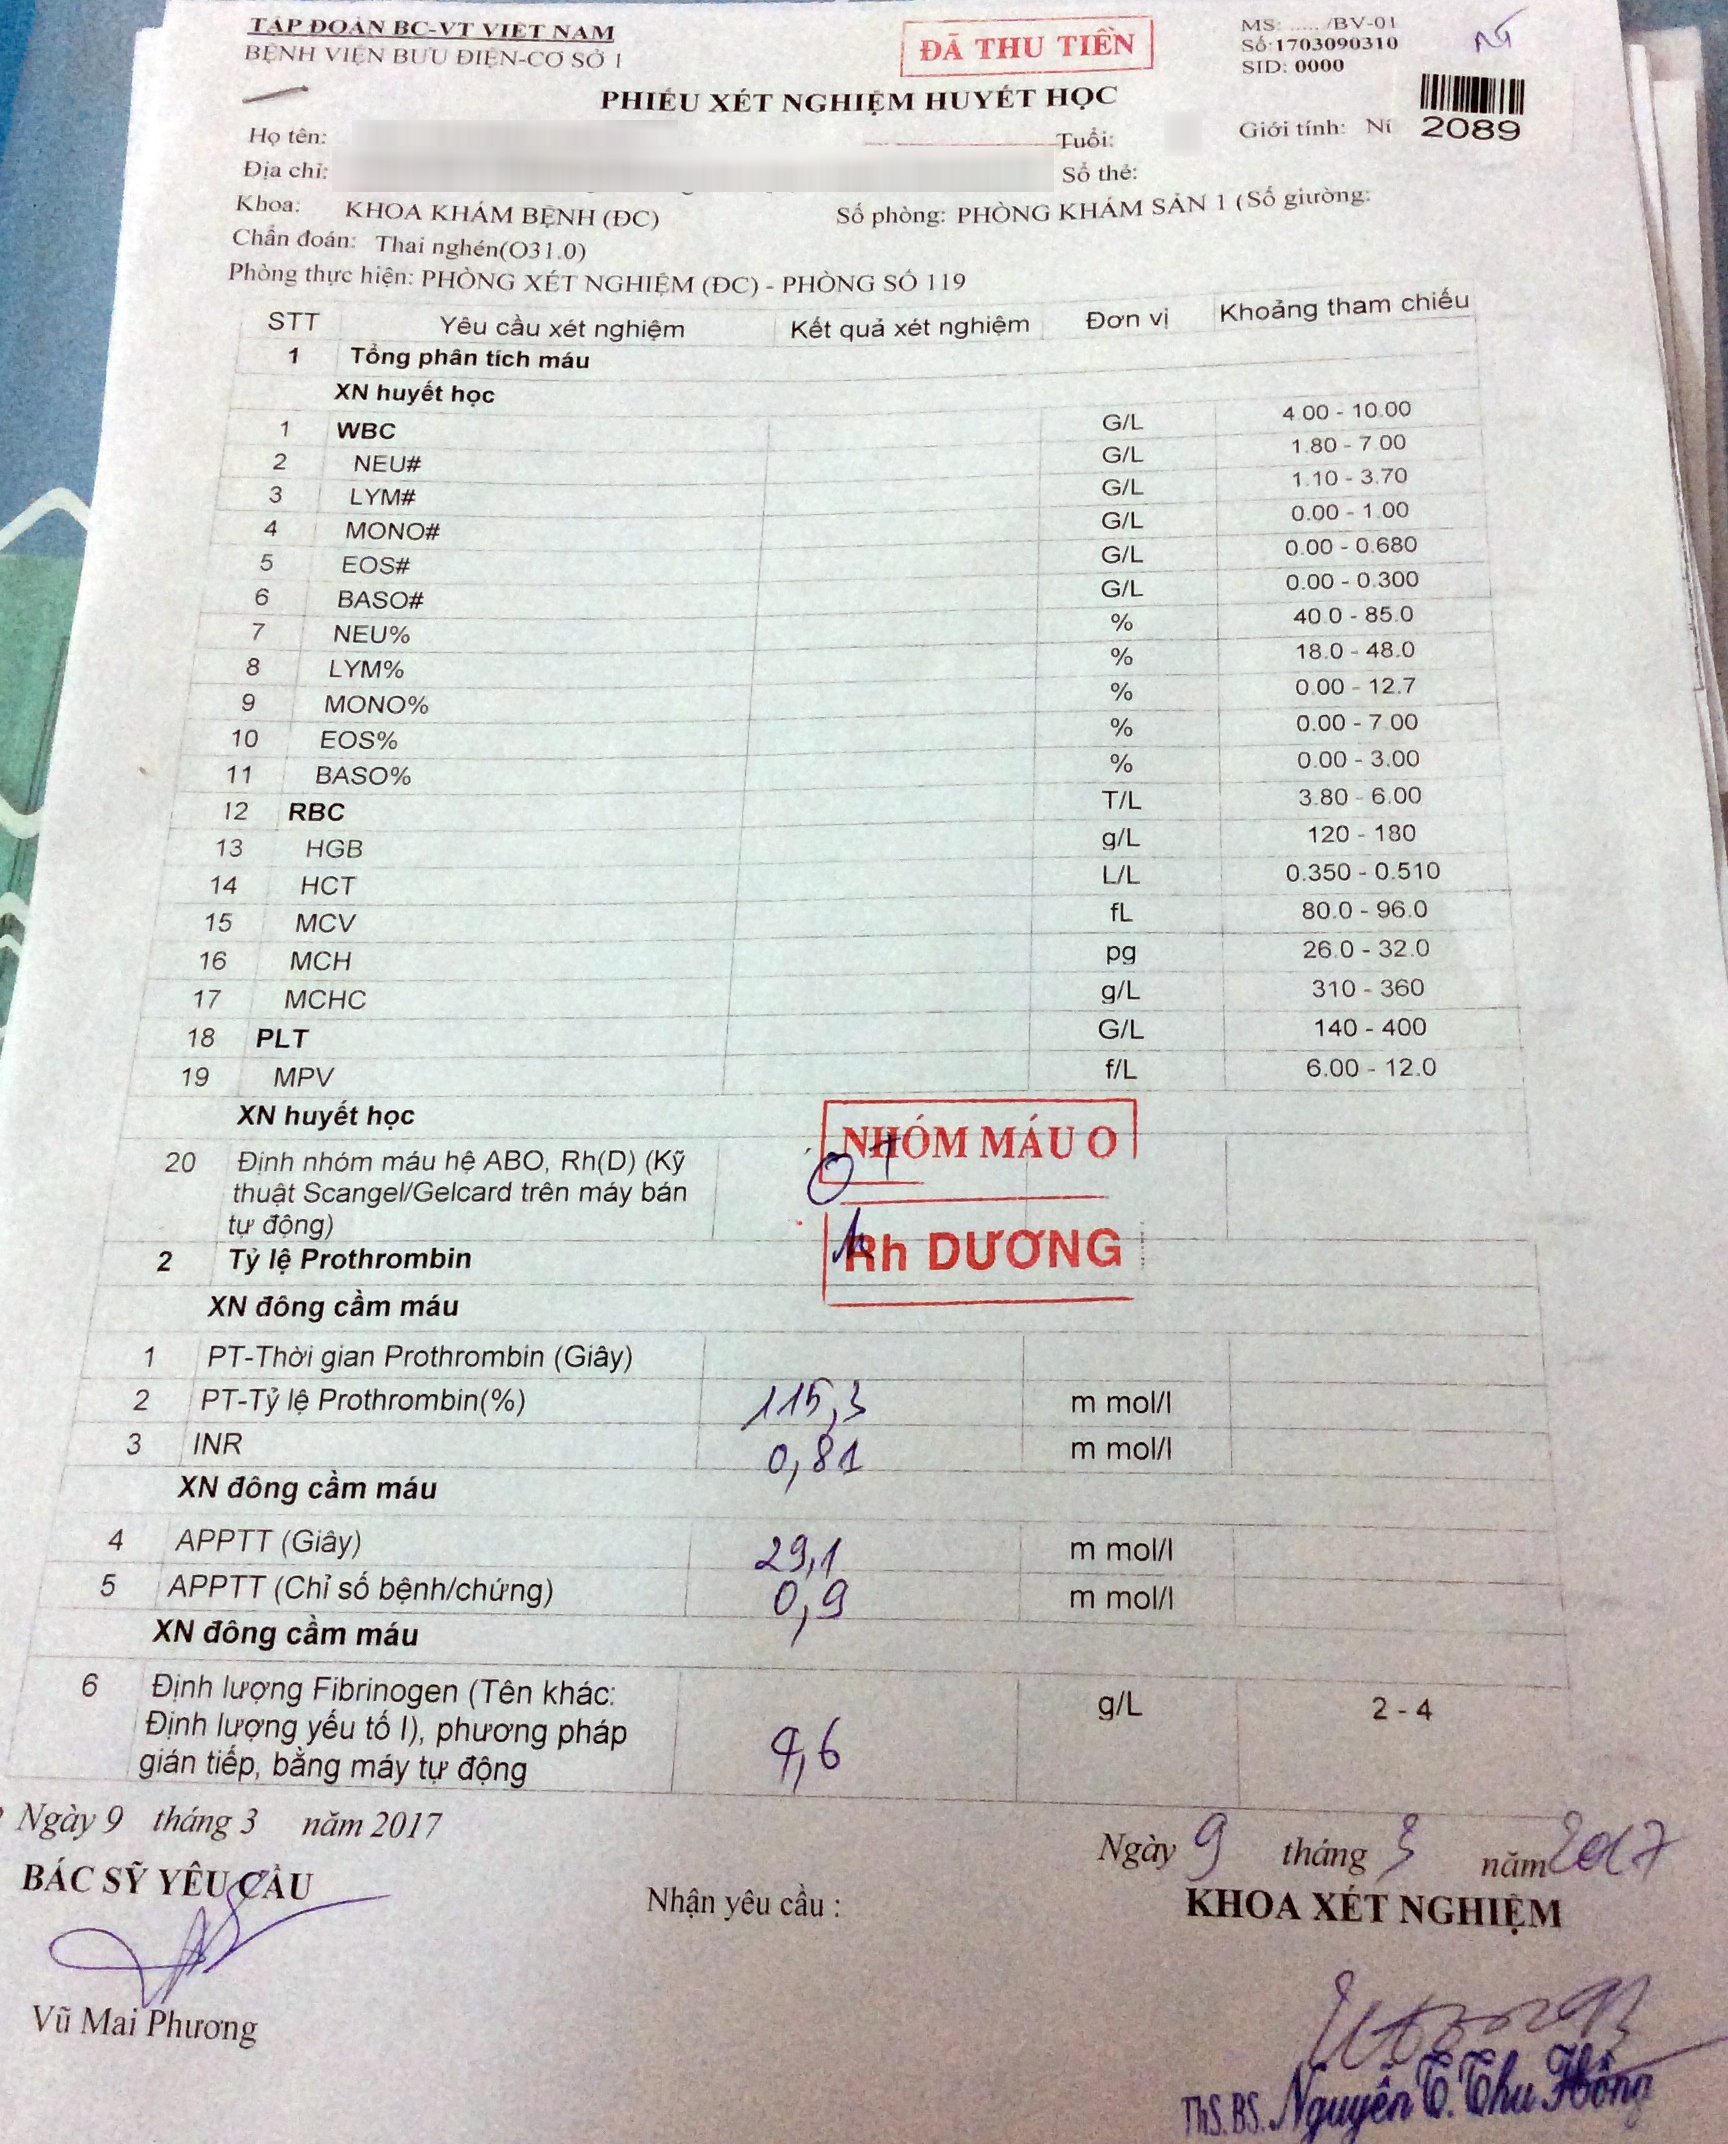 TẬP ĐOÀN BC-VT VIỆT NAM
BỆNH VIỆN BƯU ĐIỆN-CƠ SỞ 1
ĐÃ THU TIỀN
MS: ..... /BV-01
Số:1703090310
SID: 0000
PHIẾU XÉT NGHIỆM HUYẾT HỌC
2089
Họ tên: Tuổi: Giới tính: Ní
Địa chỉ: Số thẻ:
Khoa: KHOA KHÁM BỆNH (ĐC) Số phòng: PHÒNG KHÁM SẢN 1 (Số giường:
Chẩn đoán: Thai nghén(O31.0)
Phòng thực hiện: PHÒNG XÉT NGHIỆM (ĐC) - PHÒNG SỐ 119
STT Yêu cầu xét nghiệm Kết quả xét nghiệm Đơn vị Khoảng tham chiếu
1 Tổng phân tích máu
XN huyết học
1 WBC G/L 4.00 - 10.00
2 NEU# G/L 1.80 - 7.00
3 LYM# G/L 1.10 - 3.70
4 MONO# G/L 0.00 - 1.00
5 EOS# G/L 0.00 - 0.680
6 BASO# G/L 0.00 - 0.300
7 NEU% % 40.0 - 85.0
8 LYM% % 18.0 - 48.0
9 MONO% % 0.00 - 12.7
10 EOS% % 0.00 - 7.00
11 BASO% % 0.00 - 3.00
12 RBC T/L 3.80 - 6.00
13 HGB g/L 120 - 180
14 HCT L/L 0.350 - 0.510
15 MCV fL 80.0 - 96.0
16 MCH pg 26.0 - 32.0
17 MCHC g/L 310 - 360
18 PLT G/L 140 - 400
19 MPV f/L 6.00 - 12.0
XN huyết học
NHÓM MÁU O
20 Định nhóm máu hệ ABO, Rh(D) (Kỹ
thuật Scangel/Gelcard trên máy bán
tự động)
O +
Rh DƯƠNG
2 Tỷ lệ Prothrombin
XN đông cầm máu
1 PT-Thời gian Prothrombin (Giây)
2 PT-Tỷ lệ Prothrombin(%) 115,3 m mol/l
3 INR 0,81 m mol/l
XN đông cầm máu
4 APPTT (Giây) 29,1 m mol/l
5 APPTT (Chỉ số bệnh/chứng) 0,9 m mol/l
XN đông cầm máu
6 Định lượng Fibrinogen (Tên khác: g/L 2 - 4
Định lượng yếu tố I), phương pháp
gián tiếp, bằng máy tự động 4,6
Ngày 9 tháng 3 năm 2017
Ngày 9 tháng 3 năm 2017
BÁC SỸ YÊU CẦU
Nhận yêu cầu :
KHOA XÉT NGHIỆM
Vũ Mai Phương
ThS.BS. Nguyễn T. Thu Hồng